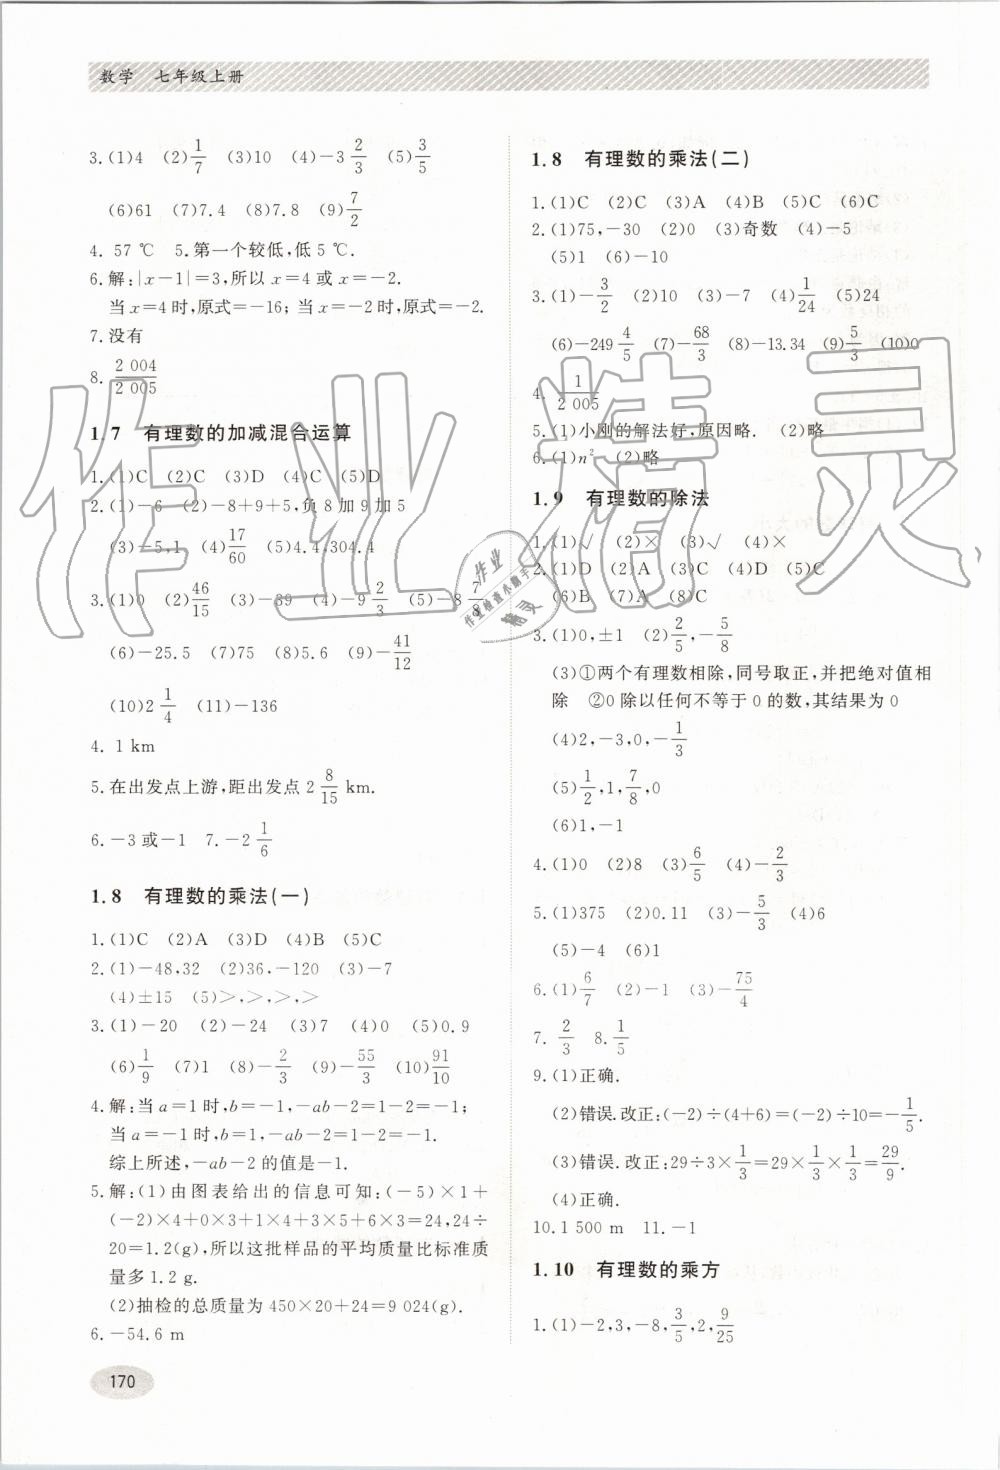 数学　七年级上册
3.(1)4　(2)1/7　(3)10　(4)-3 2/3　(5)3/5
(6)61　(7)7.4　(8)7.8　(9)7/2
4. 57 ℃　5.第一个较低,低 5 ℃.
6.解:|x-1|=3,所以 x=4 或 x=-2.
当 x=4 时,原式=-16; 当 x=-2 时,原式=-2.
7.没有
8. 2 004/2 005
1.7　有理数的加减混合运算
1.(1)C　(2)C　(3)D　(4)C　(5)D
2.(1)-6　(2)-8+9+5,负 8 加 9 加 5
(3)-5,1　(4)17/60　(5)4.4,304.4
3.(1)0　(2)46/15　(3)-39　(4)-9 2/3　(5)-8 7/8
(6)-25.5　(7)75　(8)5.6　(9)-41/12
(10)2 1/4　(11)-136
4. 1 km
5.在出发点上游,距出发点 2 8/15 km.
6.-3 或-1　7.-2 1/6
1.8　有理数的乘法(一)
1.(1)C　(2)A　(3)D　(4)B　(5)C
2.(1)-48,32　(2)36,-120　(3)-7
(4)±15　(5)>,>,>,>
3.(1)-20　(2)-24　(3)7　(4)0　(5)0.9
(6)1/9　(7)1　(8)-2/3　(9)-55/3　(10)91/10
4.解:当 a=1 时,b=-1,-ab-2=1-2=-1;
当 a=-1 时,b=1,-ab-2=1-2=-1.
综上所述,-ab-2 的值是-1.
5.解:(1)由图表给出的信息可知:(-5)×1+
(-2)×4+0×3+1×3+5×6+3×3=24,24÷
20=1.2(g),所以这批样品的平均质量比标准质
量多 1.2 g.
(2)抽检的总质量为 450×20+24=9 024(g).
6.-54.6 m
170
1.8　有理数的乘法(二)
1.(1)C　(2)C　(3)A　(4)B　(5)C　(6)C
2.(1)75,-30　(2)0　(3)奇数　(4)-5
(5)1　(6)-10
3.(1)-3/2　(2)10　(3)-7　(4)1/24　(5)24
(6)-249 4/5　(7)-68/3　(8)-13.34　(9)5/3　(10)0
4. 1/2 005
5.(1)小刚的解法好,原因略.　(2)略
6.(1)n²　(2)略
1.9　有理数的除法
1.(1)√　(2)×　(3)√　(4)×
2.(1)D　(2)A　(3)C　(4)D　(5)C
(6)B　(7)A　(8)C
3.(1)0,±1　(2)2/5,-5/8
(3)①两个有理数相除,同号取正,并把绝对值相
除　②0 除以任何不等于 0 的数,其结果为 0
(4)2,-3,0,-1/3
(5)1/2,1,7/8,0
(6)1,-1
4.(1)0　(2)8　(3)6/5　(4)-2/3
5.(1)375　(2)0.11　(3)-5/3　(4)6
(5)-4　(6)1
6.(1)6/7　(2)-1　(3)-75/4
7. 2/3　8. 1/5
9.(1)正确.
(2)错误.改正:(-2)÷(4+6)=(-2)÷10=-1/5.
(3)错误.改正:29÷3×1/3=29×1/3×1/3=29/9.
(4)正确.
10.1 500 m　11.-1
1.10　有理数的乘方
1.(1)-2,3,-8,3/5,2,9/25
作业精灵
作业
作业检查小助手
精灵